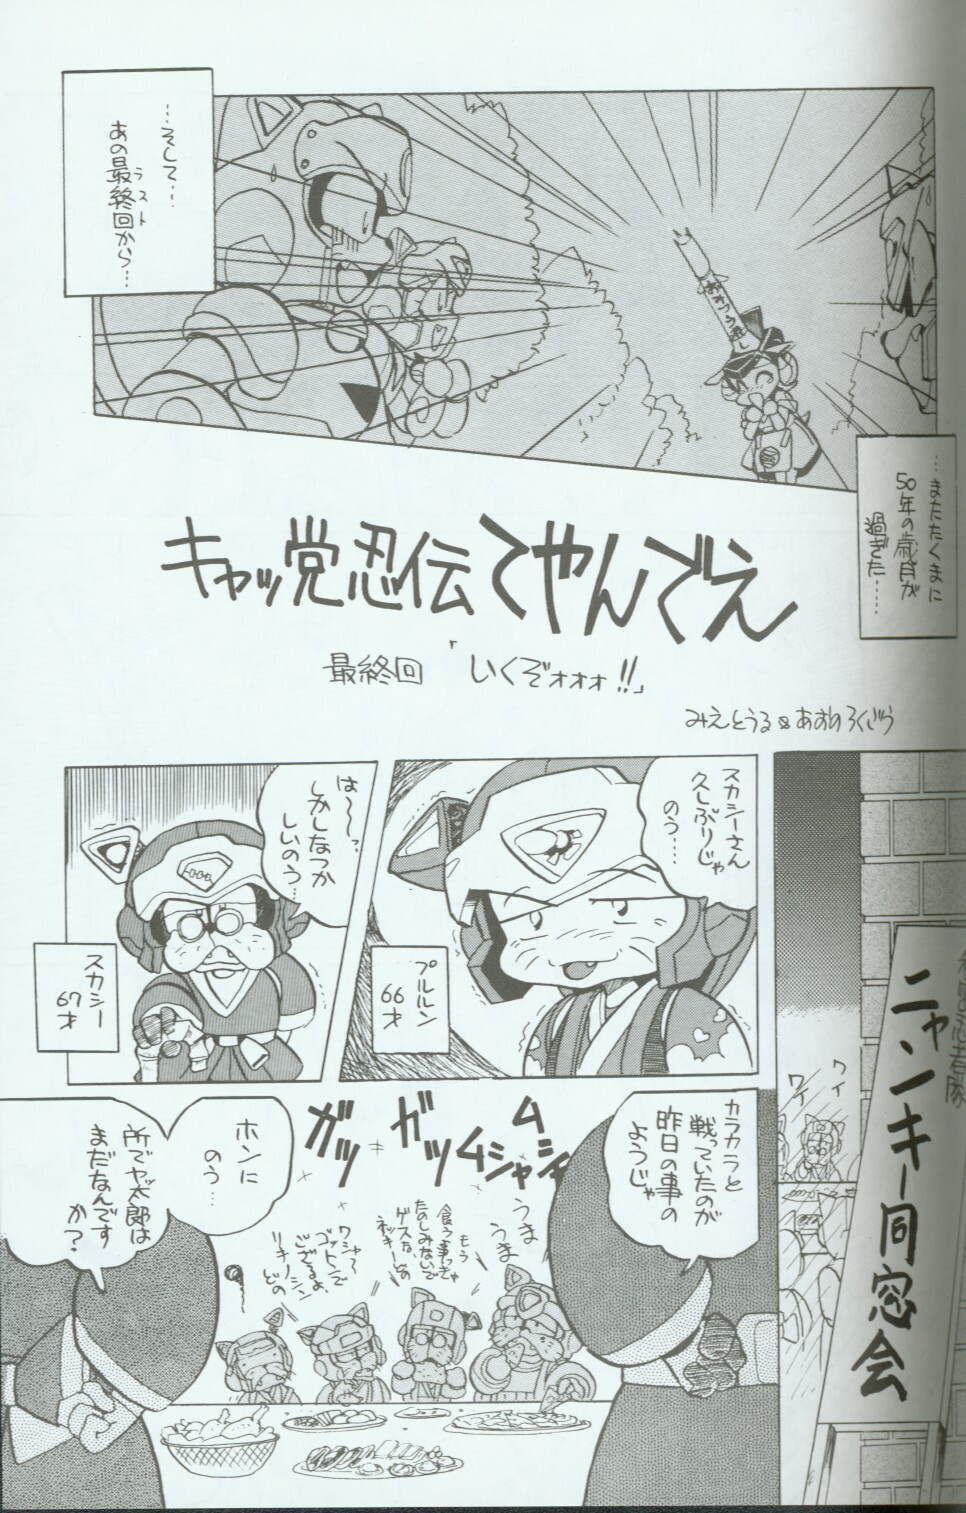 …そして…
あの最終回から…
ラスト
おみつっ殺し
…またたくまに
50年の歳月が
過ぎた……
キャッ党忍伝てやんでえ
最終回 「いくぞォォォ!!」
みえとうる&あおのろくごう
ニャンキー同窓会
ワイ
ワイ
スカシーさん
久しぶりじゃ
のう……
プルルン
66才
は〜〜っ
しかしなつか
しいのう…
スカシー
67才
カラカラと
戦っていたのが
昨日の事の
ようじゃ
ムシャムシャ
ガッ
ガツ
うま
うま
もう
食う事っきゃ
たのしみないで
ゲスな、どの
ネッキー
ワシャ〜
ゴットンで
ござるよ、
リキノシン
どの
ホンに
のう…
所でヤッ太郎は
まだなんです
か?